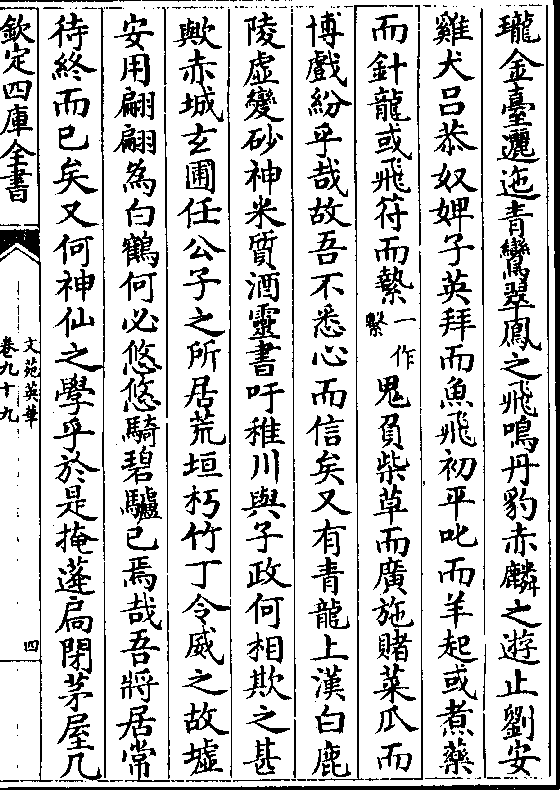 瓏金臺邐迤青鸞翠鳳之飛鳴丹豹赤麟之遊止劉安
雞犬吕恭奴婢子英拜而魚飛初平叱而羊起或煮藥
而針龍或飛符而縶一作繫鬼負柴草而廣施賭菜瓜而
博戲紛乎哉故吾不悉心而信矣又有青龍上漢白鹿
陵虚變砂神米質酒靈書吁稚川與子政何相欺之甚
歟赤城玄圃任公子之所居荒垣朽竹丁令威之故墟
安用翩翩為白鶴何必悠悠騎碧驢已焉哉吾將居常
待終而已矣又何神仙之學乎於是掩蓬扄閉茅屋几
欽定四庫全書
文苑英華
卷九十九
四